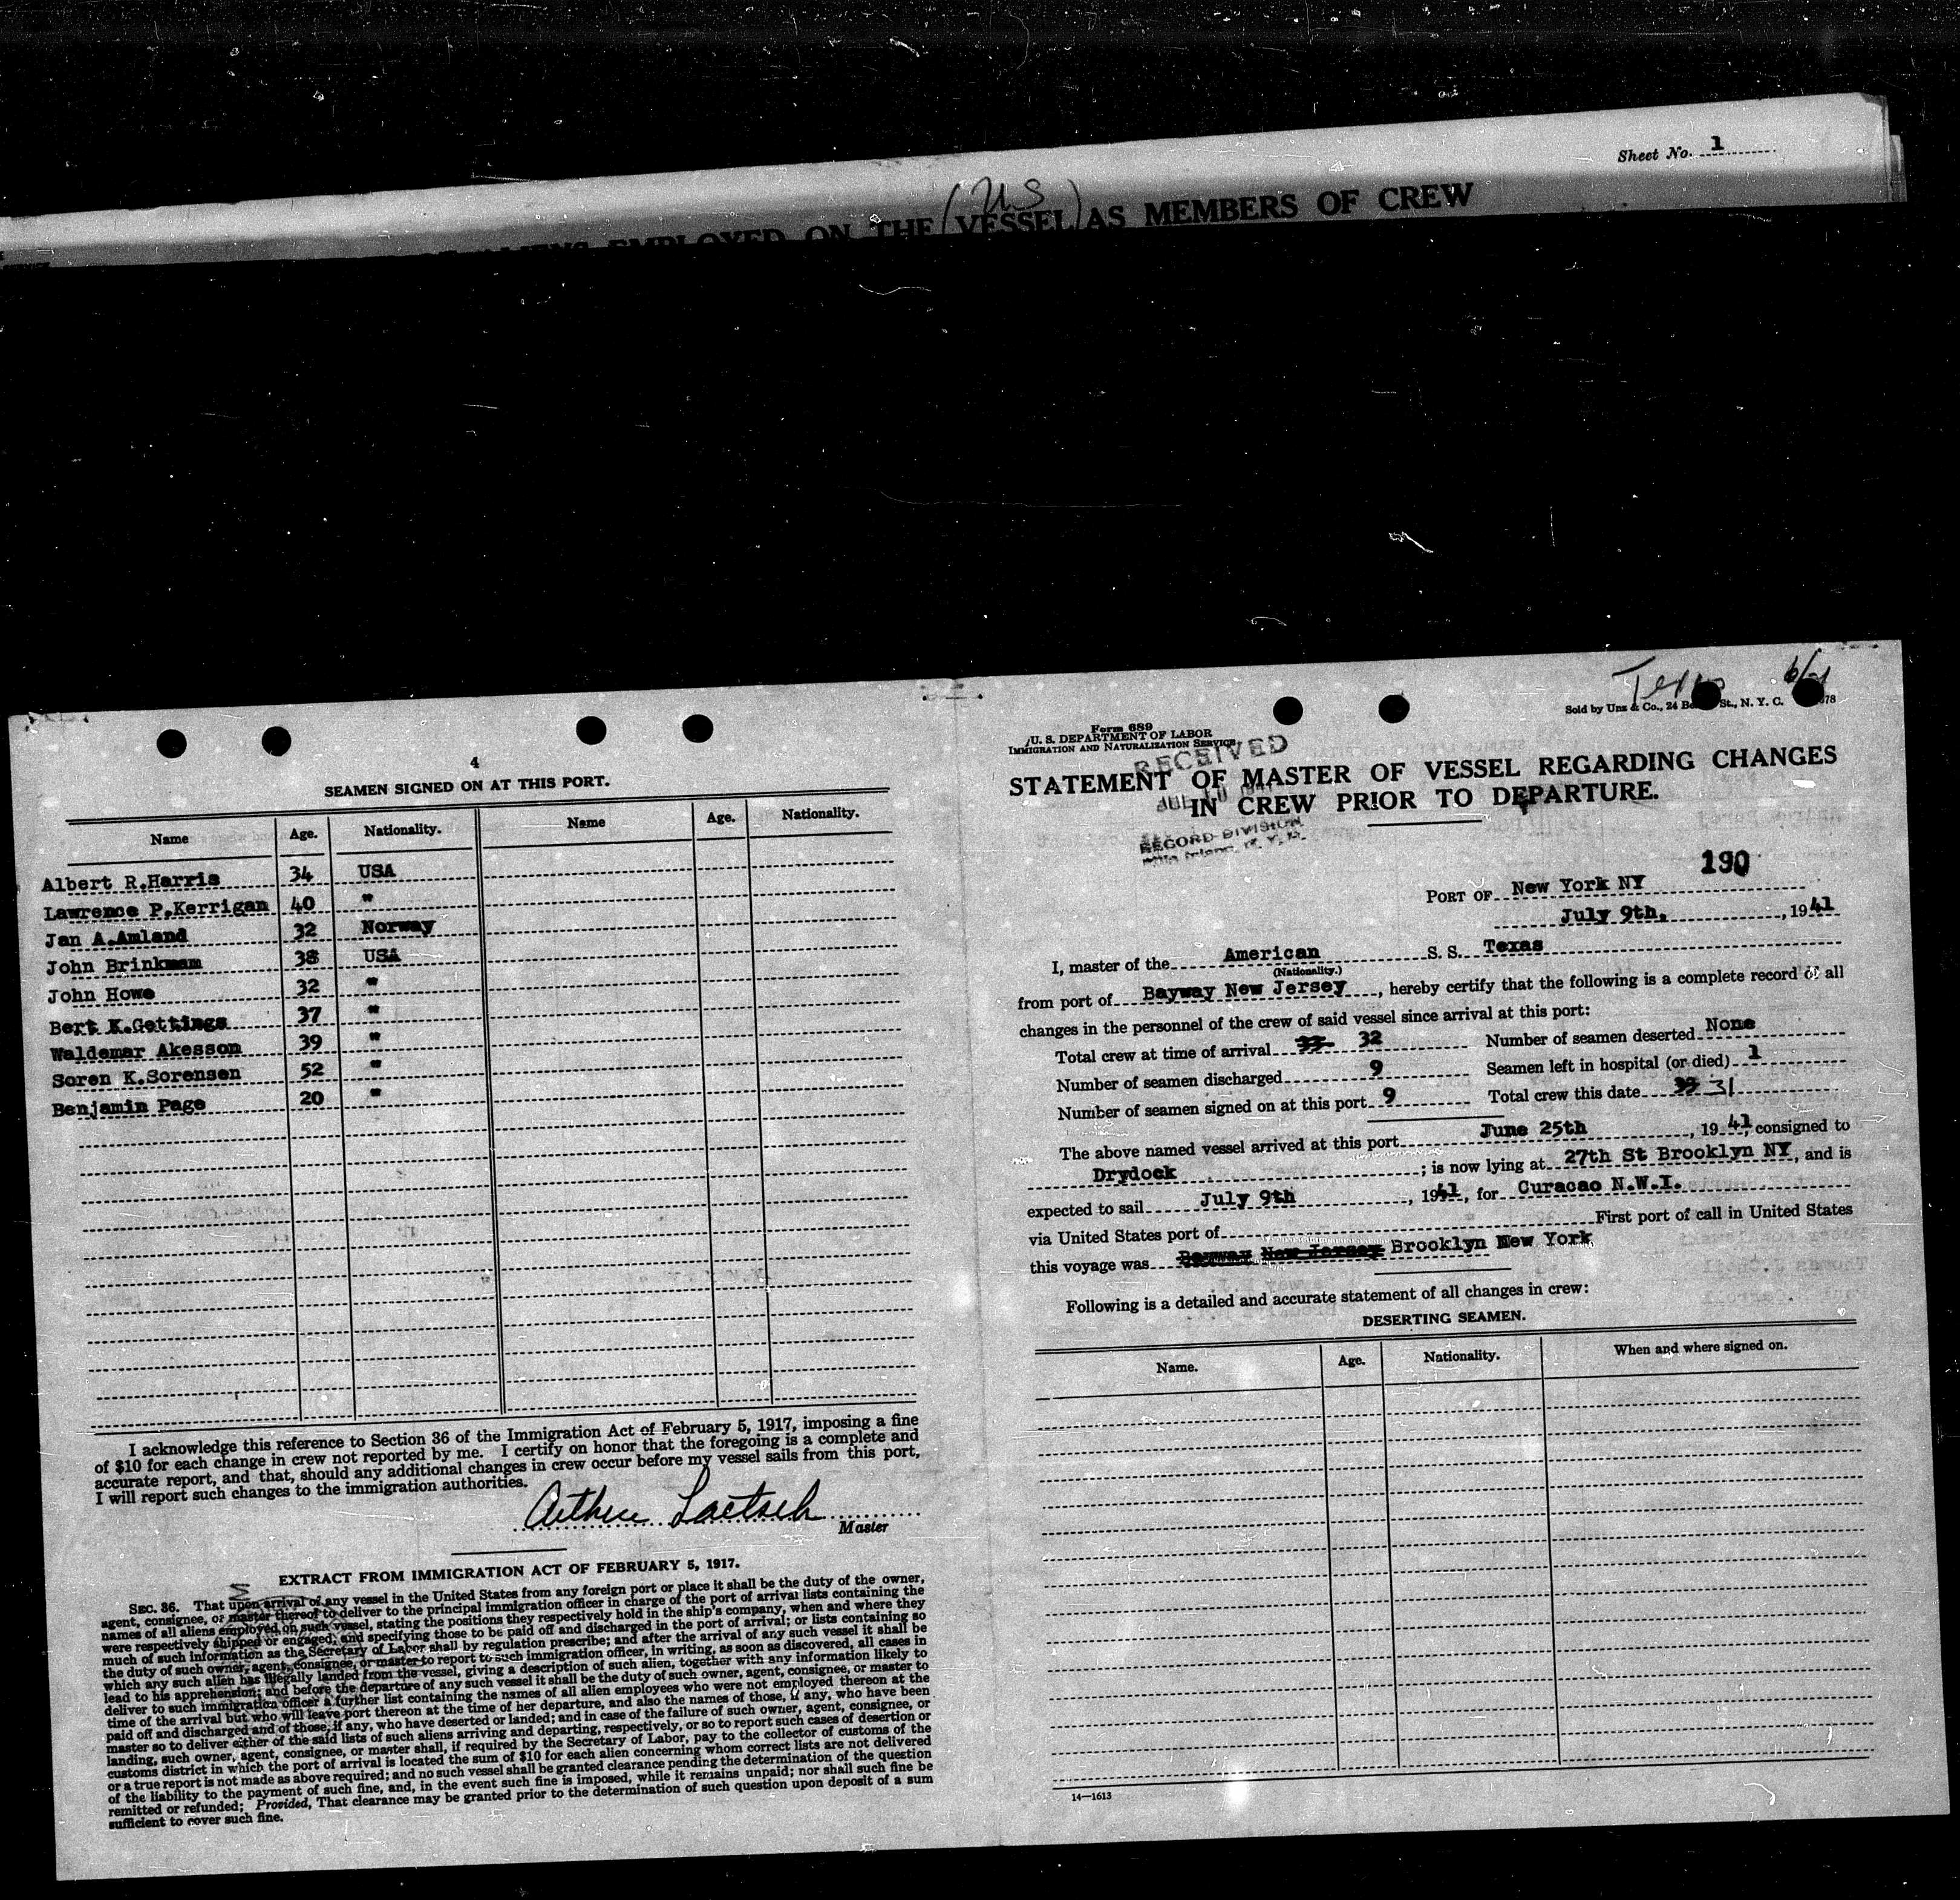 Sheet No. 1
(US)
EMPLOYED ON THE VESSEL AS MEMBERS OF CREW
4
SEAMEN SIGNED ON AT THIS PORT.
Name Age. Nationality. Name Age. Nationality.
Albert R.Harris 34 USA
Lawrence P.Kerrigan 40 "
Jan A.Amland 32 Norway
John Brinkman 38 USA
John Howe 32 "
Bert K.Gettings 37 "
Waldemar Akesson 39 "
Soren K.Sorensen 52 "
Benjamin Page 20 "
I acknowledge this reference to Section 36 of the Immigration Act of February 5, 1917, imposing a fine
of $10 for each change in crew not reported by me. I certify on honor that the foregoing is a complete and
accurate report, and that, should any additional changes in crew occur before my vessel sails from this port,
I will report such changes to the immigration authorities.
Arthur Laetsch
Master
EXTRACT FROM IMMIGRATION ACT OF FEBRUARY 5, 1917.
SEC. 36. That upon arrival of any vessel in the United States from any foreign port or place it shall be the duty of the owner,
agent, consignee, or master thereof to deliver to the principal immigration officer in charge of the port of arrival lists containing the
names of all aliens employed on such vessel, stating the positions they respectively hold in the ship's company, when and where they
were respectively shipped or engaged, and specifying those to be paid off and discharged in the port of arrival; or lists containing so
much of such information as the Secretary of Labor shall by regulation prescribe; and after the arrival of any such vessel it shall be
the duty of such owner, agent, consignee, or master to report to such immigration officer, in writing, as soon as discovered, all cases in
which any such alien has illegally landed from the vessel, giving a description of such alien, together with any information likely to
lead to his apprehension; and before the departure of any such vessel it shall be the duty of such owner, agent, consignee, or master to
deliver to such immigration officer a further list containing the names of all alien employees who were not employed thereon at the
time of the arrival but who will leave port thereon at the time of her departure, and also the names of those, if any, who have been
paid off and discharged and of those, if any, who have deserted or landed; and in case of the failure of such owner, agent, consignee, or
master so to deliver either of the said lists of such aliens arriving and departing, respectively, or so to report such cases of desertion or
landing, such owner, agent, consignee, or master shall, if required by the Secretary of Labor, pay to the collector of customs of the
customs district in which the port of arrival is located the sum of $10 for each alien concerning whom correct lists are not delivered
or a true report is not made as above required; and no such vessel shall be granted clearance pending the determination of the question
of the liability to the payment of such fine, and, in the event such fine is imposed, while it remains unpaid; nor shall such fine be
remitted or refunded; Provided, That clearance may be granted prior to the determination of such question upon deposit of a sum
sufficient to cover such fine.
Texas
Sold by Unz & Co., 24 St., N. Y. C.
Form 689
U. S. DEPARTMENT OF LABOR
IMMIGRATION AND NATURALIZATION SERVICE
RECEIVED
JUL 10 1941
RECORD DIVISION
STATEMENT OF MASTER OF VESSEL REGARDING CHANGES
IN CREW PRIOR TO DEPARTURE.
190
PORT OF New York NY
July 9th, , 1941
I, master of the American S. S. Texas
(Nationality.)
from port of Bayway New Jersey , hereby certify that the following is a complete record of all
changes in the personnel of the crew of said vessel since arrival at this port:
Total crew at time of arrival 33 32 Number of seamen deserted None
Number of seamen discharged 9 Seamen left in hospital (or died) 1
Number of seamen signed on at this port 9 Total crew this date 33 31
The above named vessel arrived at this port June 25th , 1941, consigned to
Drydock ; is now lying at 27th St Brooklyn NY, and is
expected to sail July 9th , 1941, for Curacao N.W.I.
via United States port of First port of call in United States
this voyage was Bayway New Jersey Brooklyn New York
Following is a detailed and accurate statement of all changes in crew:
DESERTING SEAMEN.
Name. Age. Nationality. When and where signed on.
14—1613